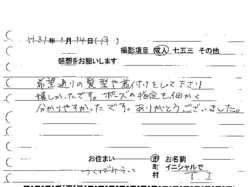 H31年1月14日(月)
撮影項目 成人 七五三 その他
感想をお願いします
希望通りの髪型や着付けをして下さり
嬉しかったです。ポーズの指定も細かく
分かりやすかったです。ありがとうございました。
お住まい
市
町
村
お名前
イニシャルで
つくばみらい
T.I